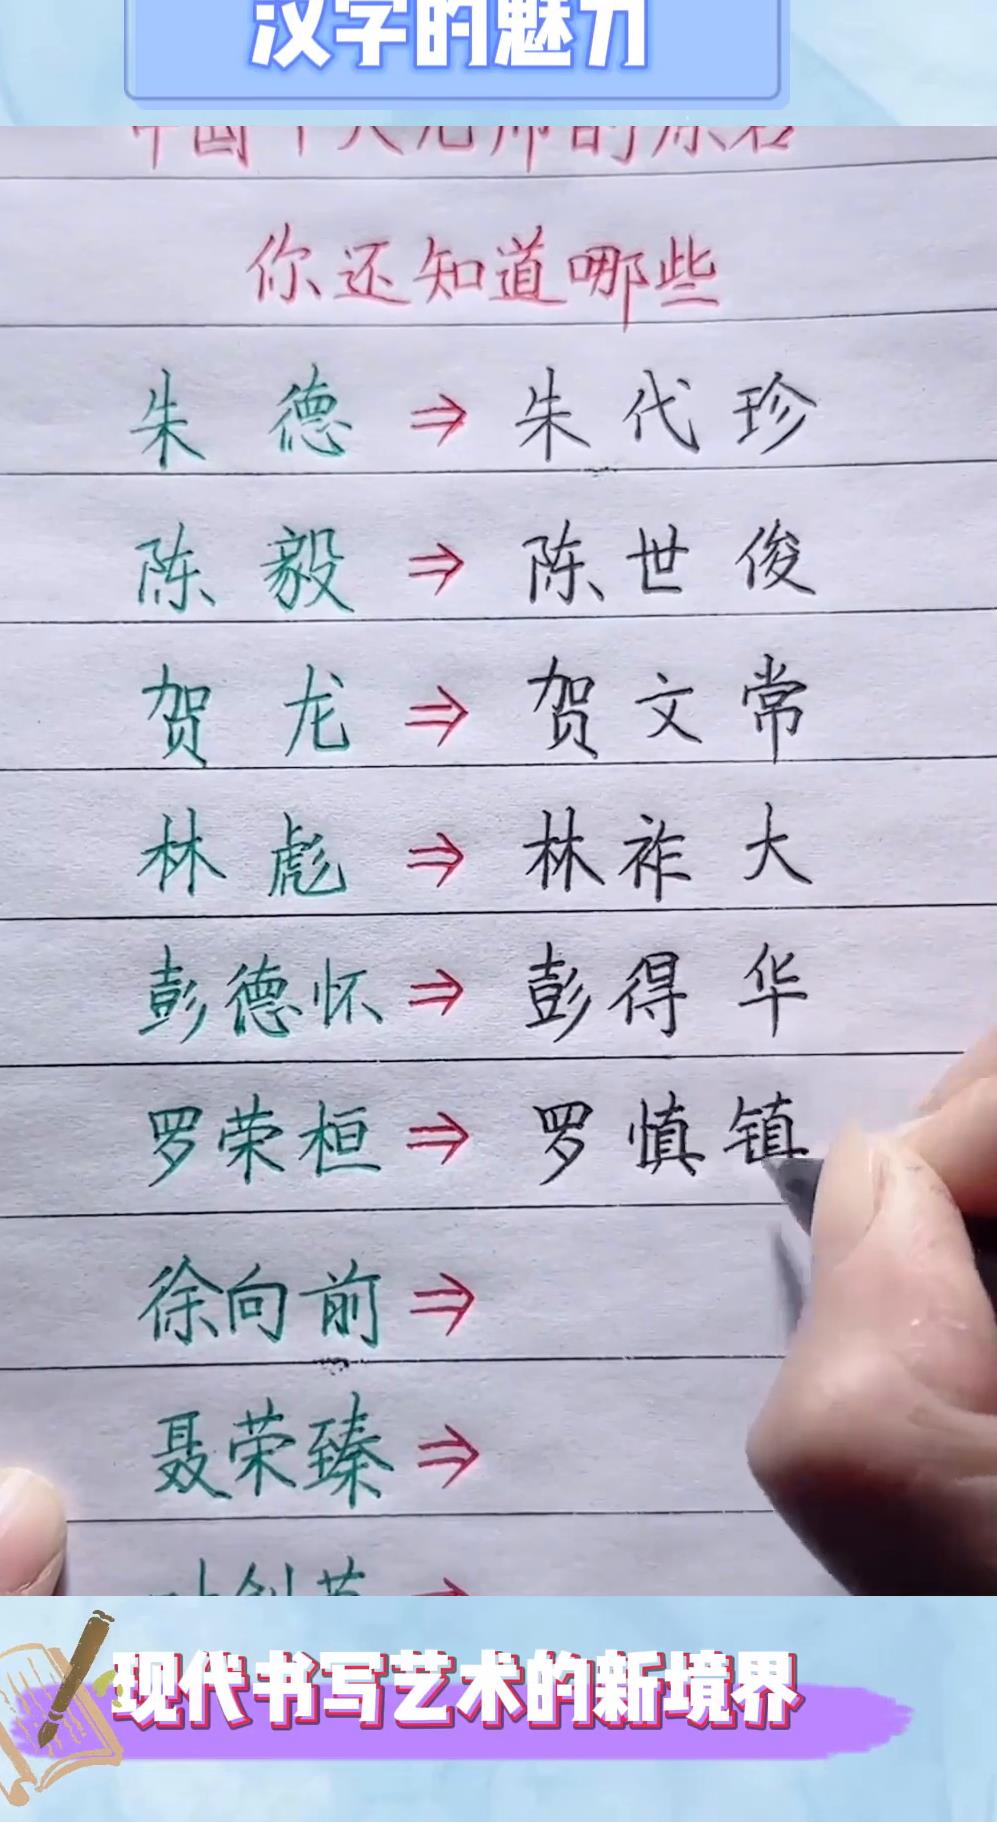 汉字的魅力
中国十大元帅的原名
你还知道哪些
朱德⇒朱代珍
陈毅⇒陈世俊
贺龙⇒贺文常
林彪⇒林祚大
彭德怀⇒彭得华
罗荣桓⇒罗慎镇
徐向前⇒
聂荣臻⇒
叶剑英⇒
现代书写艺术的新境界